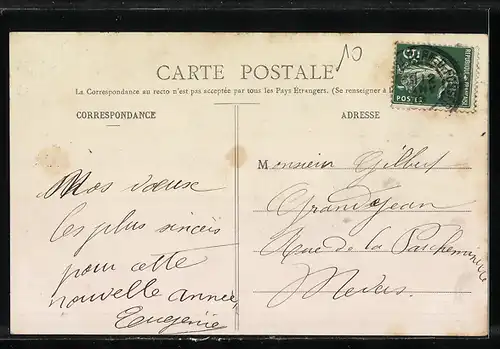 10
CARTE POSTALE
La Correspondance au recto n'est pas acceptée par tous les Pays Étrangers. (Se renseigner à
CORRESPONDANCE
ADRESSE
5
POSTES
Mos vœuse
les plus sinceis
pour cette
nouvelle année
Eugenie
Monsieur Gilbert
Grandjean
Rue de la Parcheminerie
Nevers.